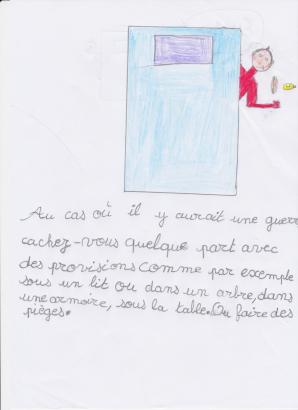 Au cas où il y aurait une guerre
cachez-vous quelque part avec
des provisions comme par exemple
sous un lit ou dans un arbre, dans
une armoire, sous la table. Ou faire des
pièges.